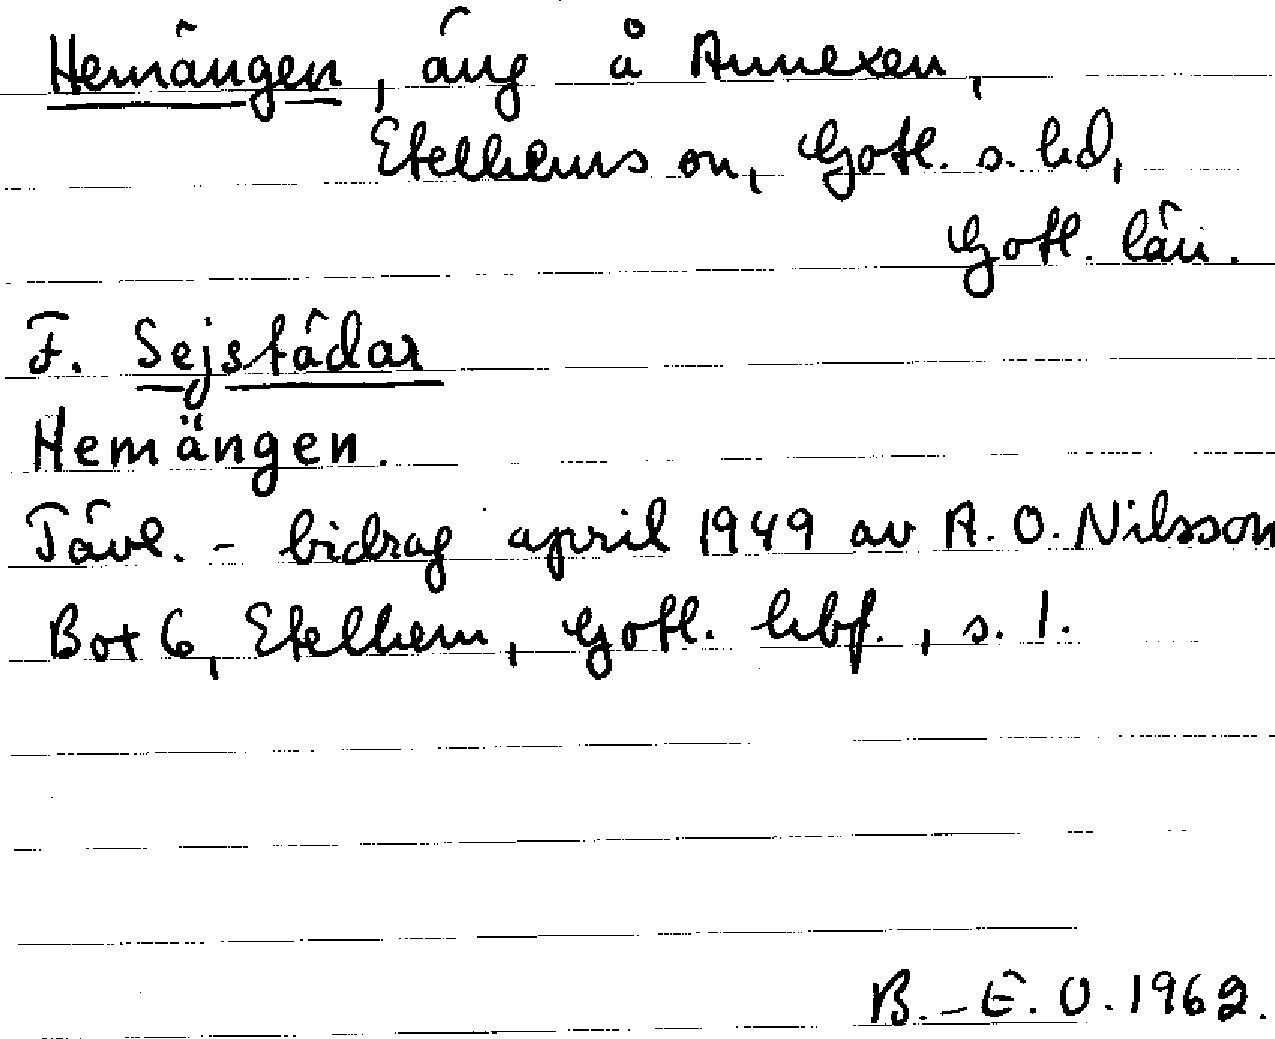 Hemängen, äng å Annexen,
Etelhems sn, Gotl. s. hd,
Gotl. län.
F. Sejstädar
Hemängen.
Tävl. - bidrag april 1949 av A. O. Nilsson
Bot 6, Etelhem, Gotl. hbf., s. 1.
B. - E. O. 1962.